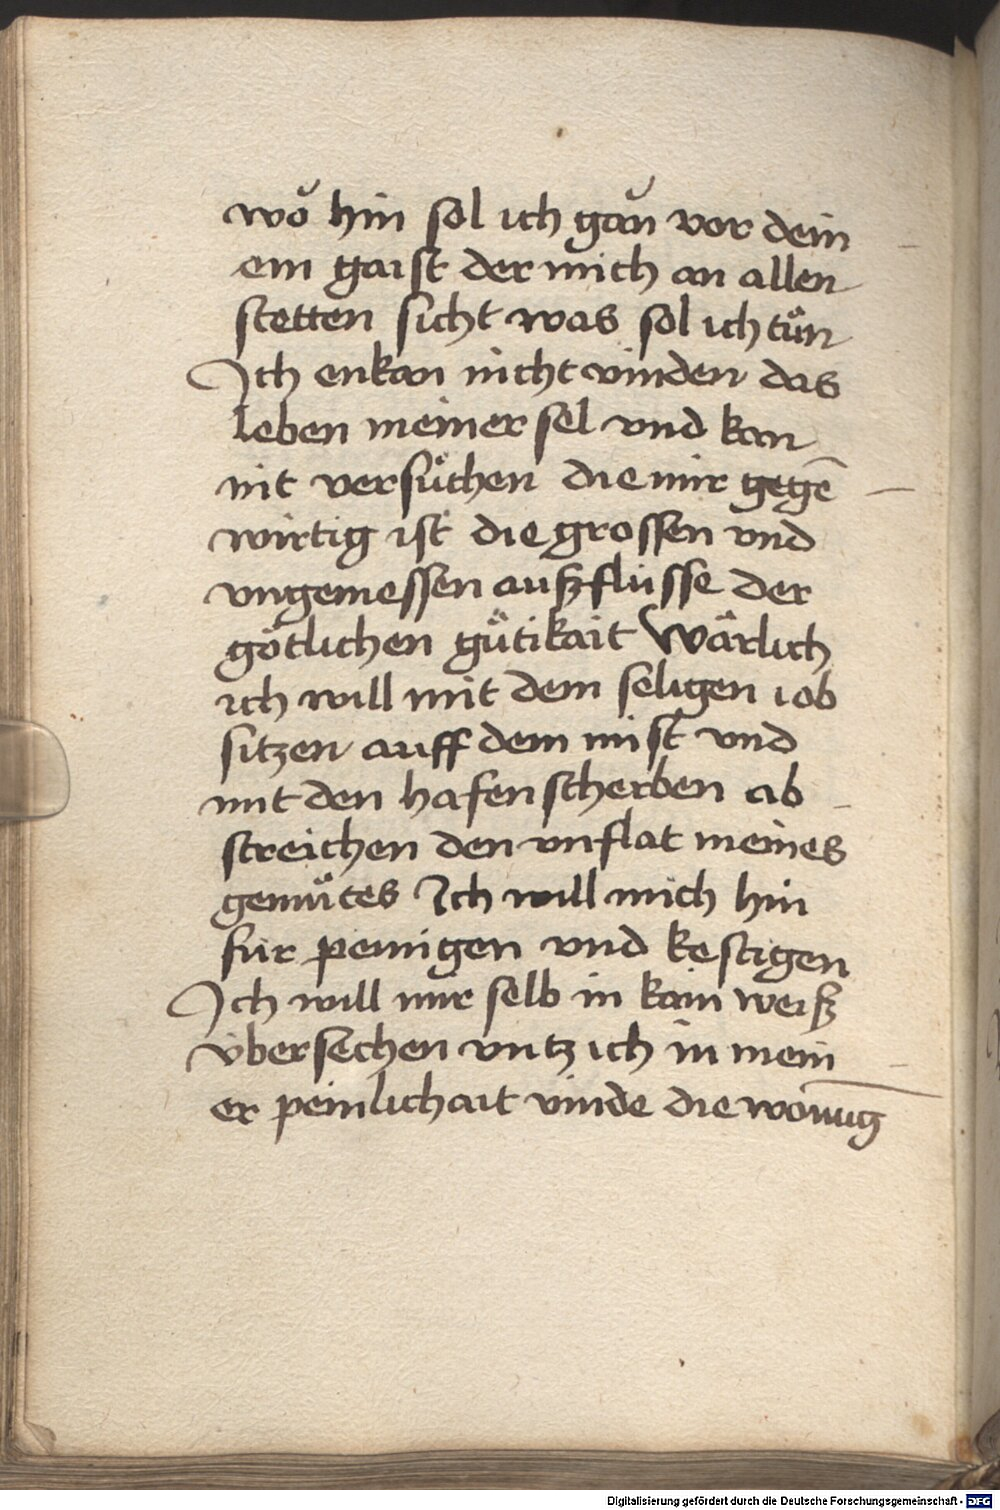 wǒ hin sol ich gǎn vor dein
em gaist der mich an allen
stetten sicht was sol ich tuͦn
Ich enkan nicht vinden das
leben meiner sel vnd kan
nit versuͦchen die mir gegē
wirtig ist die grossen vnd
vngemessen außflüsse der
götlichen gütikait Wärlich
ich will mit dem seligen iob
sitzen auff dem mist vnd
mit den hafen scherben ab
streichen den vnflat meines
gemuͤtes Ich will mich hin
für peinigen vnd kestigen
Ich will mir selb in kain weiß
übersechen vntz ich in mein
er peinlichait vinde die wonūg
Digitalisierung gefördert durch die Deutsche Forschungsgemeinschaft - DFG